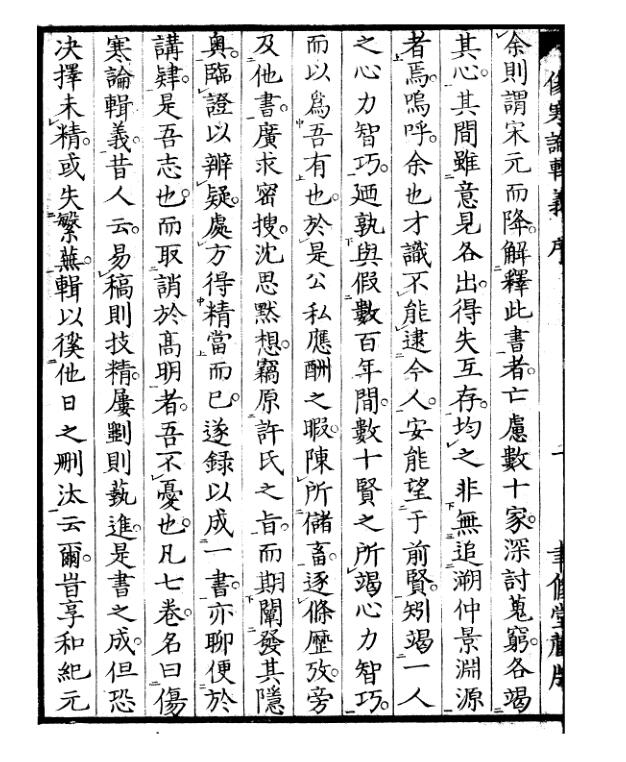 傷寒論輯義序
聿修堂藏版
余則謂宋元而降。解釋此書者。亡慮數十家。深討蒐窮。各竭
其心。其間雖意見各出。得失互存。均之非無追溯仲景淵源
者焉。嗚呼。余也才識不能逮今人。安能望于前賢。矧竭一人
之心力智巧。廼孰與假數百年間。數十賢之所竭心力智巧。
而以爲吾有也。於是公私應酬之暇。陳所儲畜。逐條歷攷。旁
及他書。廣求密搜。沈思默想。竊原許氏之旨。而期闡發其隱
奧。臨證以辨疑。處方得精當而已。遂録以成一書。亦聊便於
講肄。是吾志也。而取誚於高明者。吾不憂也。凡七卷。名曰傷
寒論輯義。昔人云。易稿則技精。屢劃則藝進。是書之成。但恐
決擇未精。或失繁蕪。輯以徯他日之刪汰云爾。旹享和紀元